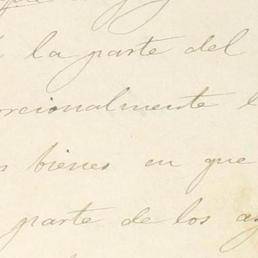 la parte del
rcionalmente
bienes en que
parte de los